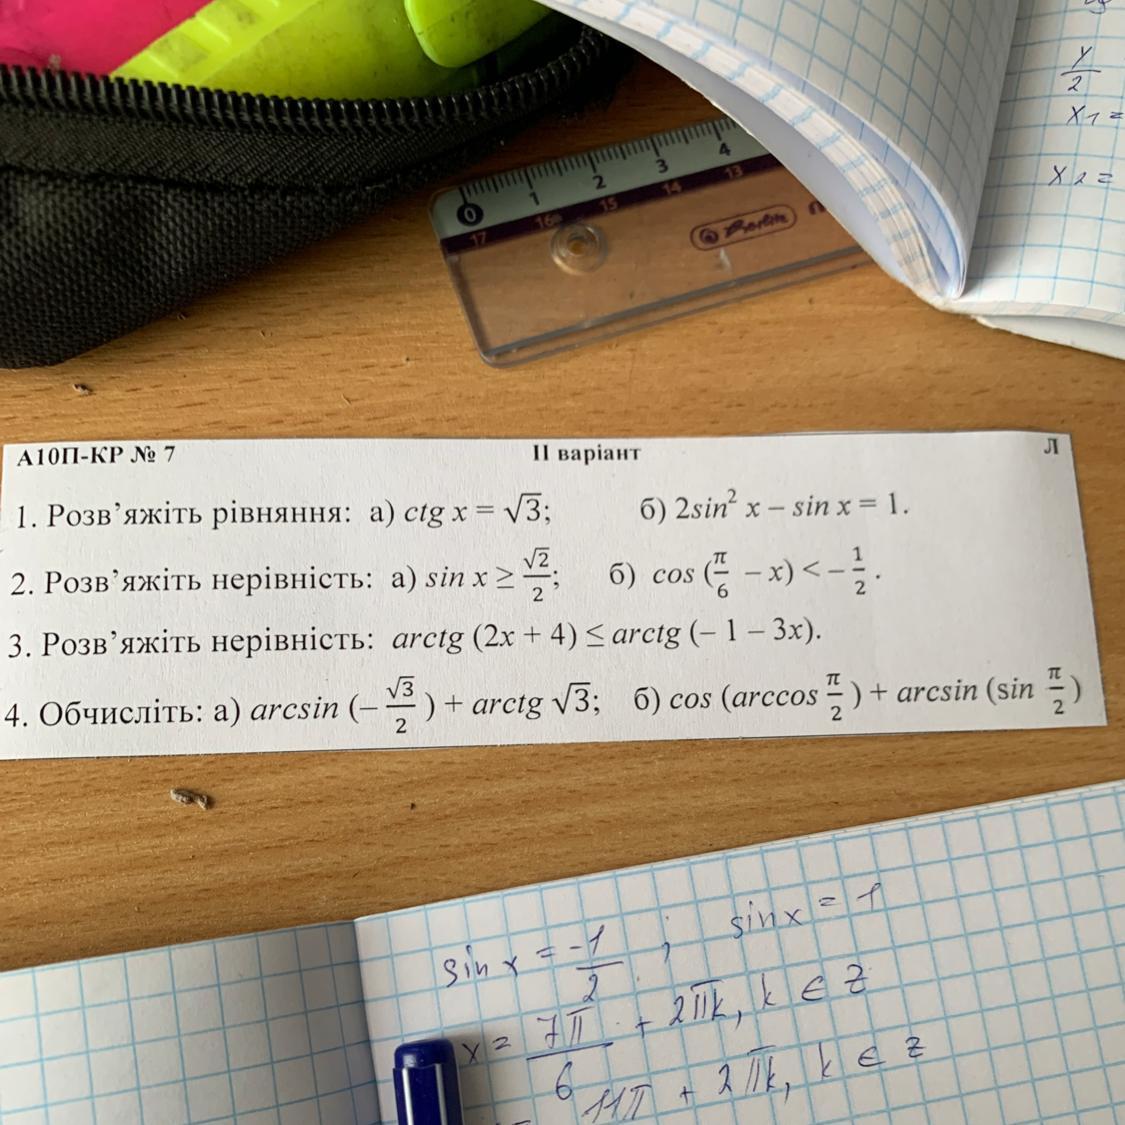 y/2
x₁ =
x₂ =
0 1 2 3 4
17 16 15 14 13
А10П-КР № 7 II варіант Л
1. Розв’яжіть рівняння: а) ctg x = √3; б) 2sin² x – sin x = 1.
2. Розв’яжіть нерівність: а) sin x ≥ √2/2; б) cos (π/6 – x) < – 1/2 .
3. Розв’яжіть нерівність: arctg (2x + 4) ≤ arctg (– 1 – 3x).
4. Обчисліть: а) arcsin (– √3/2 ) + arctg √3; б) cos (arccos π/2 ) + arcsin (sin π/2 )
sin x = -1/2 ; sin x = 1
x = 7π/6 + 2πk, k ∈ z
11π + 2πk, k ∈ z